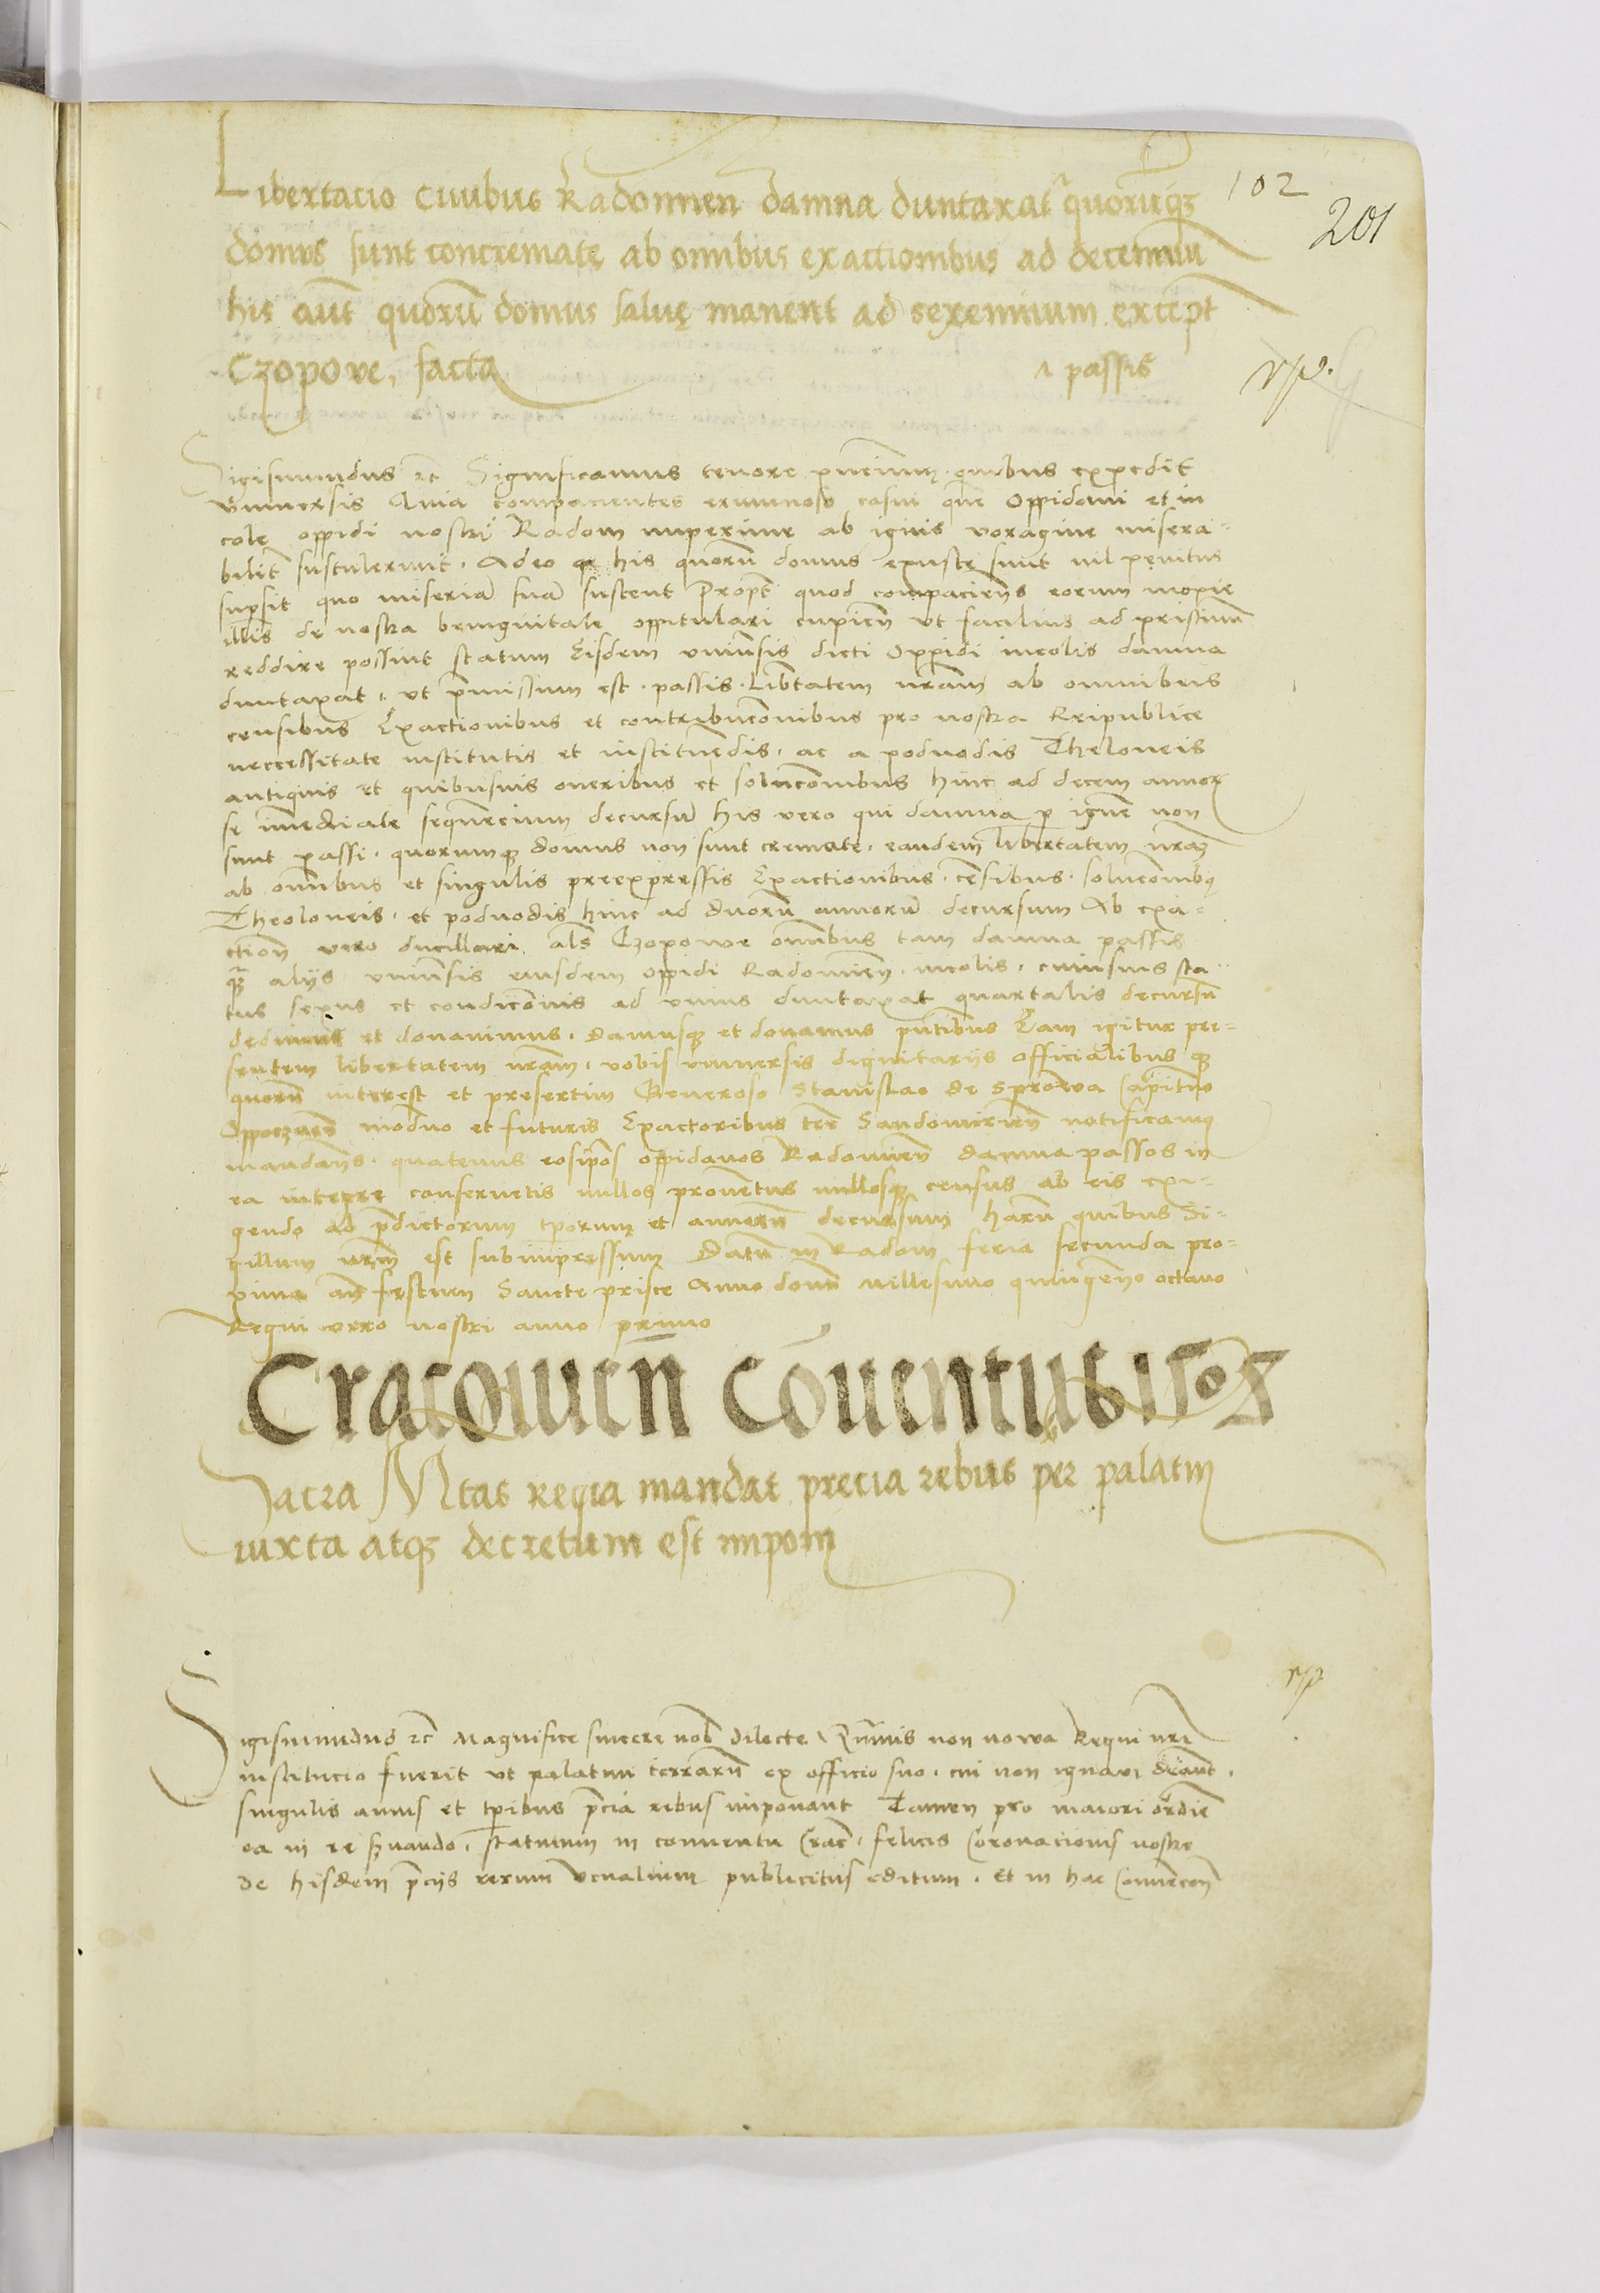 102
201
Libertacio Civibus Radomien damna duntaxat ^ quorumq3
domus sunt concremate ab omnibus exactionibus ad decenniu
his aut quoru domus salve manent ad sexennium except
Czopove, facta ^ passis
rp.
Sigismundus rc Significamus tenore pncium. quibus expedit
Vniversis Quia compacientes erumnoso casui que Oppidani et in
cole oppidi nostri Radom nuperime ab ignis voragine misera-
bilit sustulerunt. Adeo q his quoru domus exuste sunt nil penitus
supsit quo miseria sua sustent Propt quod compaciens eorum inopie
illis de nostra benignitate oppitulari cupien vt facilius ad pristinum
reddire possint statum Eisdem vniusis dicti Oppidi incolis damna
duntaxat. vt pmissum est. passis. Libtatem nram ab omnibus
censibus Exactionibus et contribuconibus pro nostra Reipublice
neccessitate institutis et instituedis. ac a podvodis Theloneis
antiquis et quibusuis oneribus et soluconibus hinc ad decem annor
se imediate sequencium decursu his vero qui damna p igne non
sunt passi. quorumq3 domus non sunt cremate. eandem libertatem nram
ab omibus et singulis preexpressis Exactionibus. censibus. soluconibq
Theoloneis. et podvodis hinc ad duoru annoru decursum Ab exa-
ction vero ducillari als Czopowe omibus tam damna passis
q3 alys vniusis eiusdem oppidi Radomien. incolis. cuiusuis sta
tus sexus et condiconis ad vnius duntaxat quartalis decursu
dedimus et donauimus. damusq3 et donamus pntibus Eam igitur pre-
sentem libertatem nram. vobis vniuersis dignitariis officialibus q3
quoru interest et presertim Generoso Stanislao de Sprowa Capitneo
Oppoczuen moduo et futuris Exactoribus tre Sandomirien notificamq
mandans. quatenus eosipos oppidanos Radomien damna passos in
ea integre conseruetis nullos prouentus nullosq3 census ab eis exi-
gendo ad pdictorum tporum et annoru decursum haru quibus Si-
gillum nrm est subimpressum Datu in Radom feria secunda pro-
xima an festum Sancte prisce Anno domi Millesimo quingeno octauo
Regni vero nostri anno primo
Cracouien Couentus 1508
Sacra Mtas regia mandat precia rebus per palatin
iuxta atq3 decretum est imponi
rp
Sigismundus rc Magnifice sincere nob dilecte Quis non nowa Regni nri
institucio fuerit vt palatini terraru ex officio suo. cui non ignari deant.
singulis annis et tpibus pcia rebus imponant Tamen pro maiori ordie
ea in re suando. statutum in conuentu Crac. felicis Coronacionis nostre
de hisdem pciis rerum venalium publicitus editum. Et in hac Conuencon